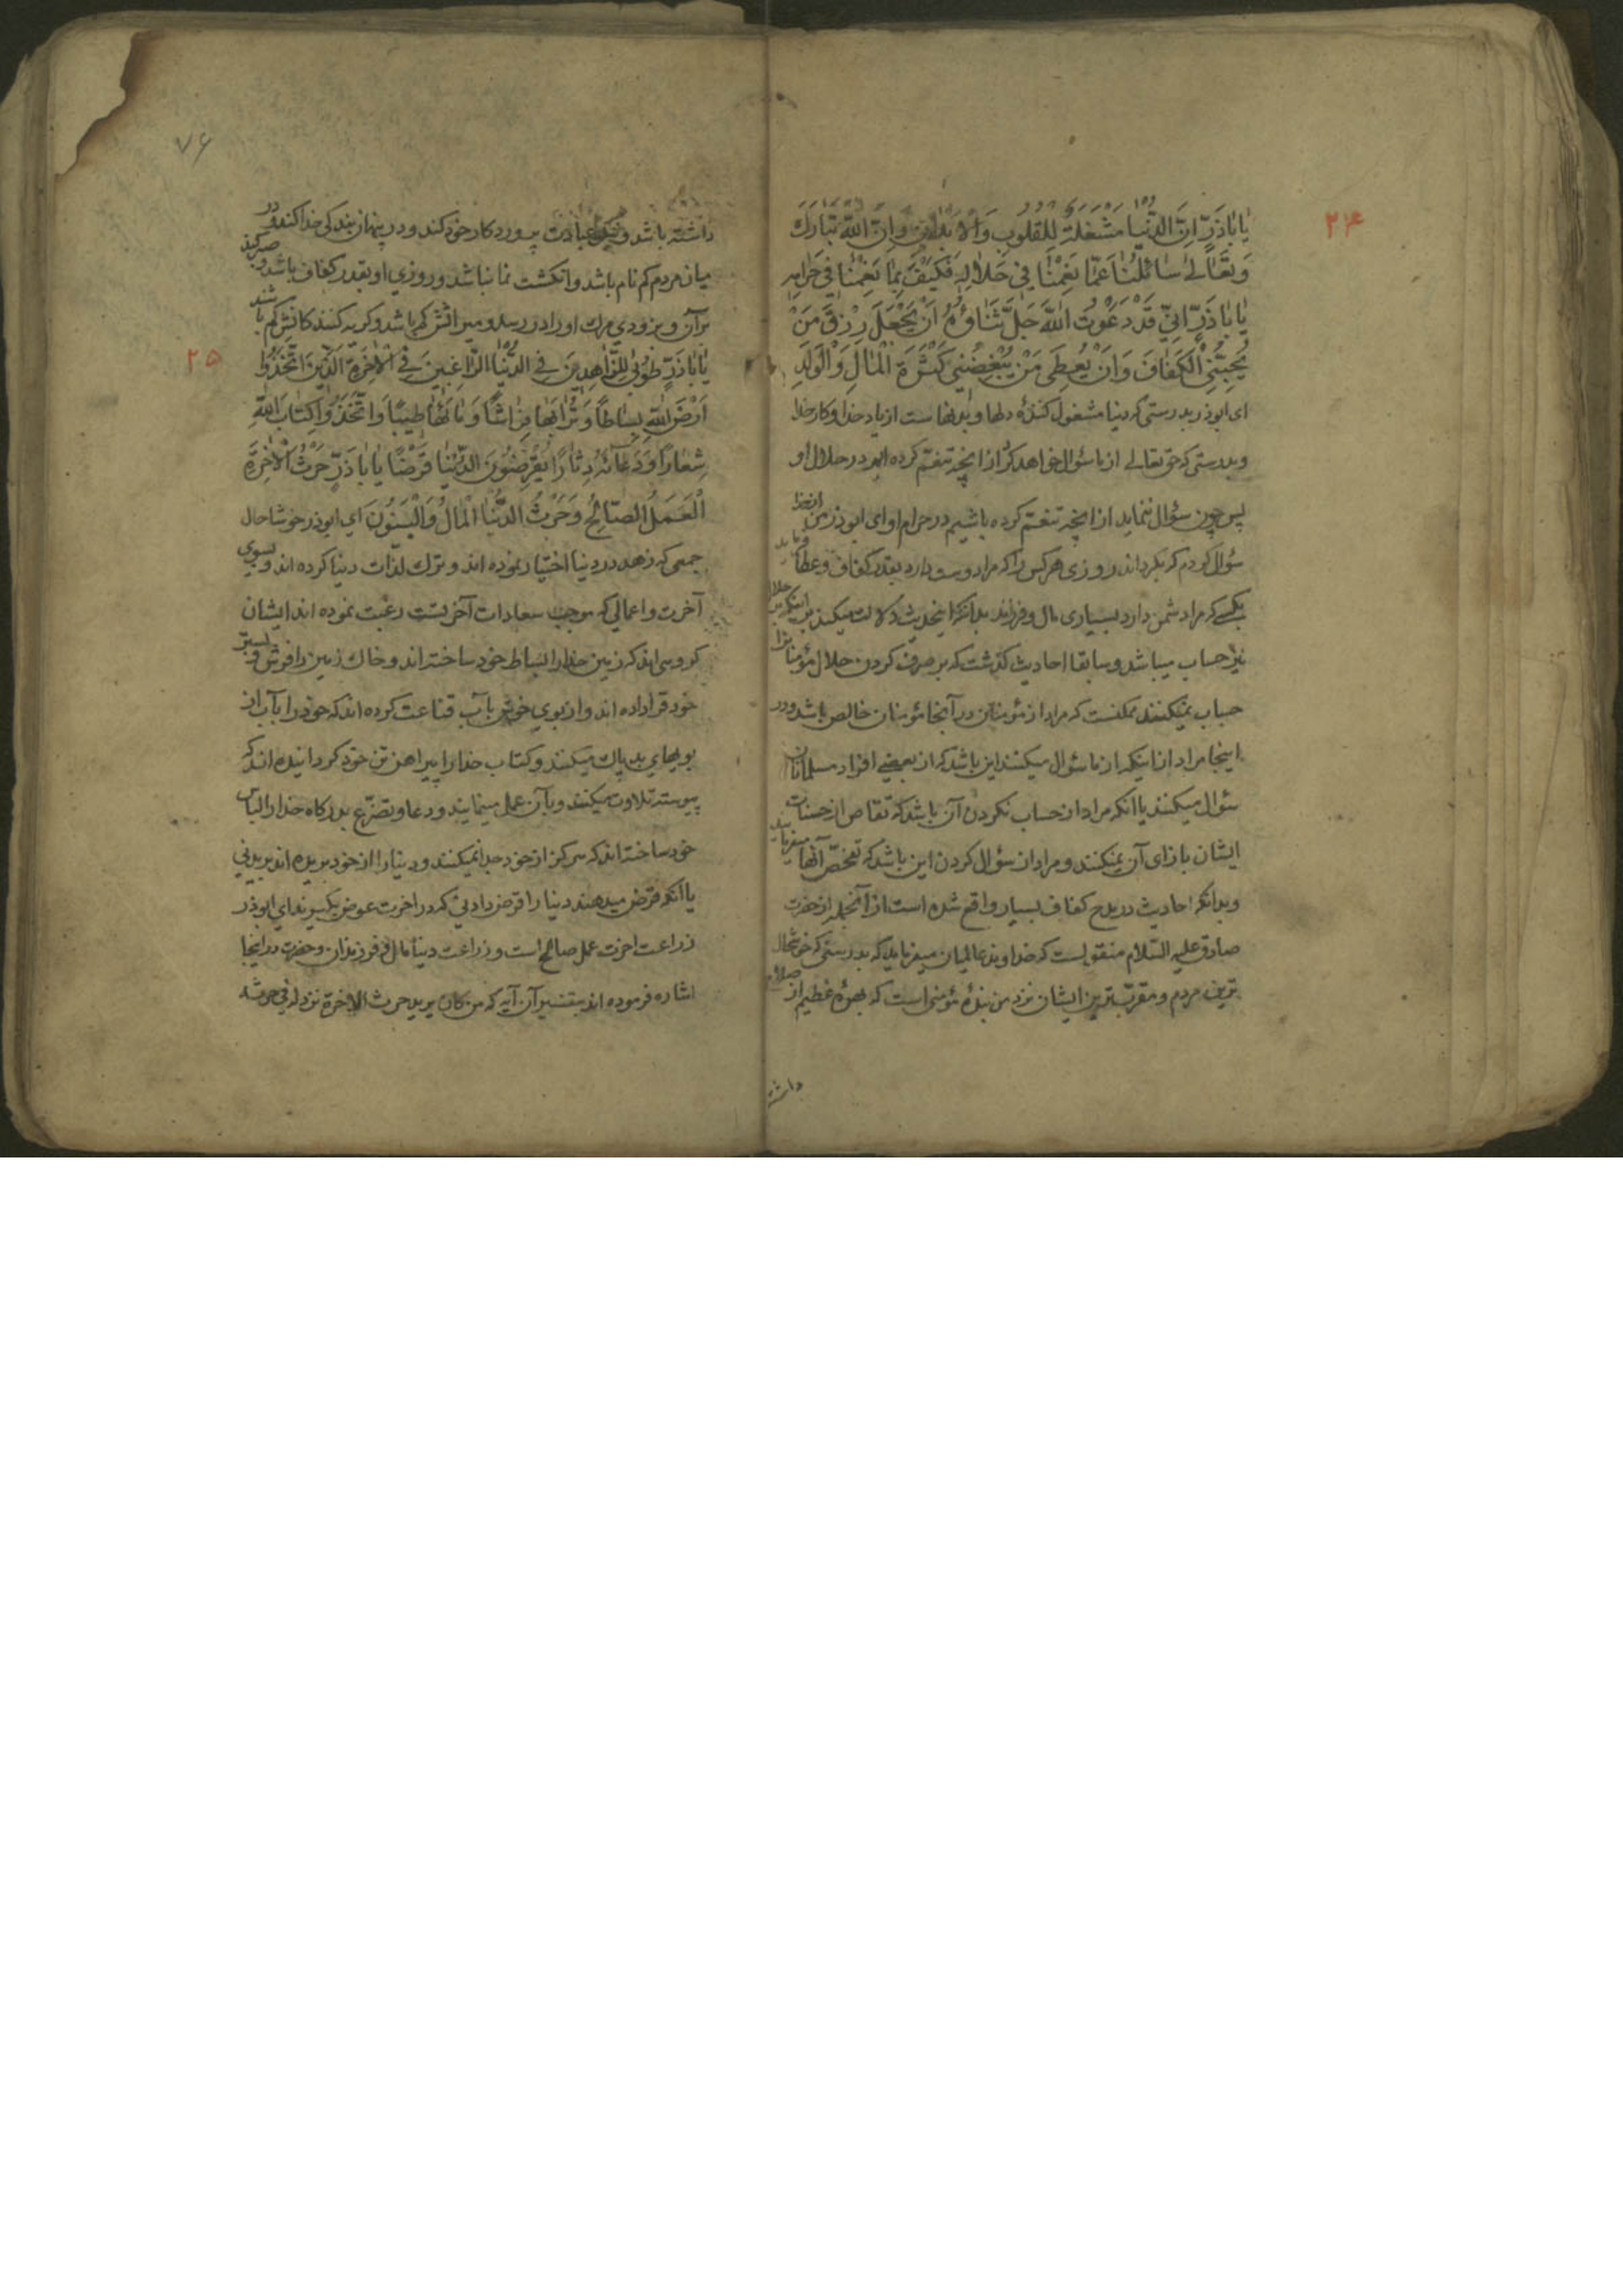 ۲۴
یٰا بٰاذَرٍّ اِنَّ الدُّنْیٰا مَشْغَلَةٌ لِلْقُلُوبِ وَالْاَبْدٰانِ وَاِنَّ اللّٰهَ تَبٰارَكَ
وَتَعٰالٰی سٰائِلُنٰا عَمّٰا نَعِمْنٰا فِی حَلٰالِهِ فَكَیْفَ بِمٰا نَعِمْنٰا فِی حَرٰامِهِ
یٰا بٰاذَرٍّ اِنِّی قَدْ دَعَوْتُ اللّٰهَ جَلَّ ثَنٰاؤُهُ اَنْ یَجْعَلَ رِزْقَ مَنْ
یُحِبُّنِی الْكَفٰافَ وَاَنْ یُعْطِیَ مَنْ یُبْغِضُنِی كَثْرَةَ الْمٰالِ وَالْوَلَدِ
ای ابوذر بدرستی که دنیا مشغول کنندهٔ دلها و بدنهاست از یاد خدا و کار خدا
و بدرستی که حق تعالی از ما سؤال خواهد کرد از انچه تنعّم کرده ایم در حلال او
پس چون سؤال ننماید از انچه تنعّم کرده باشیم در حرام او ای ابوذر من از خدا
سؤال کردم که بگرداند روزی هر کس را که مرا دوست دارد بقدر کفاف و عطا فرماید
بکسی که مرا دشمن دارد بسیاری مال و فرزند بدانکه اینحدیث دلالت میکند بر اینکه بر حلال
نیز حساب میباشد و سابقا احادیث گذشت که بر صرف کردن حلال مؤمنانرا
حساب نمیکنند ممکنست که مراد از مؤمنان در آنجا مؤمنان خالص باشد و در
اینجا مراد از اینکه از ما سؤال میکنند این باشد که از بعضی افراد مسلمانان
سؤال میکنند یا انکه مراد از حساب نکردن آن باشد که تقاص از حسنات
ایشان بازای آن نمیکنند و مراد از سؤال کردن این باشد که تفحّص آنها میفرمایند
و بدانکه احادیث در مدح کفاف بسیار واقع شده است از آنجمله از حضرت
صادق علیه السّلام منقولست که خداوند عالمیان میفرماید که بدرستی که خوشحال
ترین مردم و مقرّب ترین ایشان نزد من بندهٔ مؤمنی است که بهرهٔ عظیم از صلاح
داشته
۷۶
داشته باشد و نیکو عبادت پروردکار خود کند و در پنهان بندکی خدا کند و در
میان مردم کم نام باشد و انکشت نما نباشد و روزی او بقدر کفاف باشد و صبر کند
بر آن و بزودی مرك او را در رسد و میراثش کم باشد و کریه کنندکانش کم باشند
۲۵
یٰا بٰاذَرٍّ طُوبٰی لِلزّٰاهِدِینَ فِی الدُّنْیٰا الرّٰاغِبِینَ فِی الْاٰخِرَةِ الَّذِینَ اتَّخَذُوا
اَرْضَ اللّٰهِ بِسٰاطاً وَتُرٰابَهٰا فِرٰاشاً وَمٰائَهٰا طِیباً وَاتَّخَذُوا كِتٰابَ اللّٰهِ
شِعٰاراً وَدُعٰائَهُ دِثٰاراً یُقْرِضُونَ الدُّنْیٰا قَرْضاً یٰا بٰاذَرٍّ حَرْثُ الْاٰخِرَةِ
الْعَمَلُ الصّٰالِحُ وَحَرْثُ الدُّنْیٰا الْمٰالُ وَالْبَنُونَ ای ابوذر خوشا حال
جمعی که زهد در دنیا اختیار نموده اند و ترك لذّات دنیا کرده اند و بسوی
آخرت و اعمالی که موجب سعادات آخرتست رغبت نموده اند ایشان
کروهی اند که زمین خدا را بساط خود ساخته اند و خاك زمین را فرش و بستر
خود قرار داده اند و از بوی خوش بآب قناعت کرده اند که خود را بآب از
بویهای بد پاك میکنند و کتاب خدا را پیراهن تن خود کردانیده اند که
پیوسته تلاوت میکنند و بآن عمل مینمایند و دعا و تضرّع بدرکاه خدا را لباس
خود ساخته اند که هرکز از خود جدا نمیکنند و دنیا را از خود بریده اند بریدنی
یا انکه قرض میدهند دنیا را قرض دادنی که در اخرت عوض بکیرند ای ابوذر
زراعت اخرت عمل صالح است و زراعت دنیا مال و فرزندان و حضرت در اینجا
اشاره فرموده اند بتفسیر آن آیه که من كان یرید حرث الاخرة نزد له فی حرثه